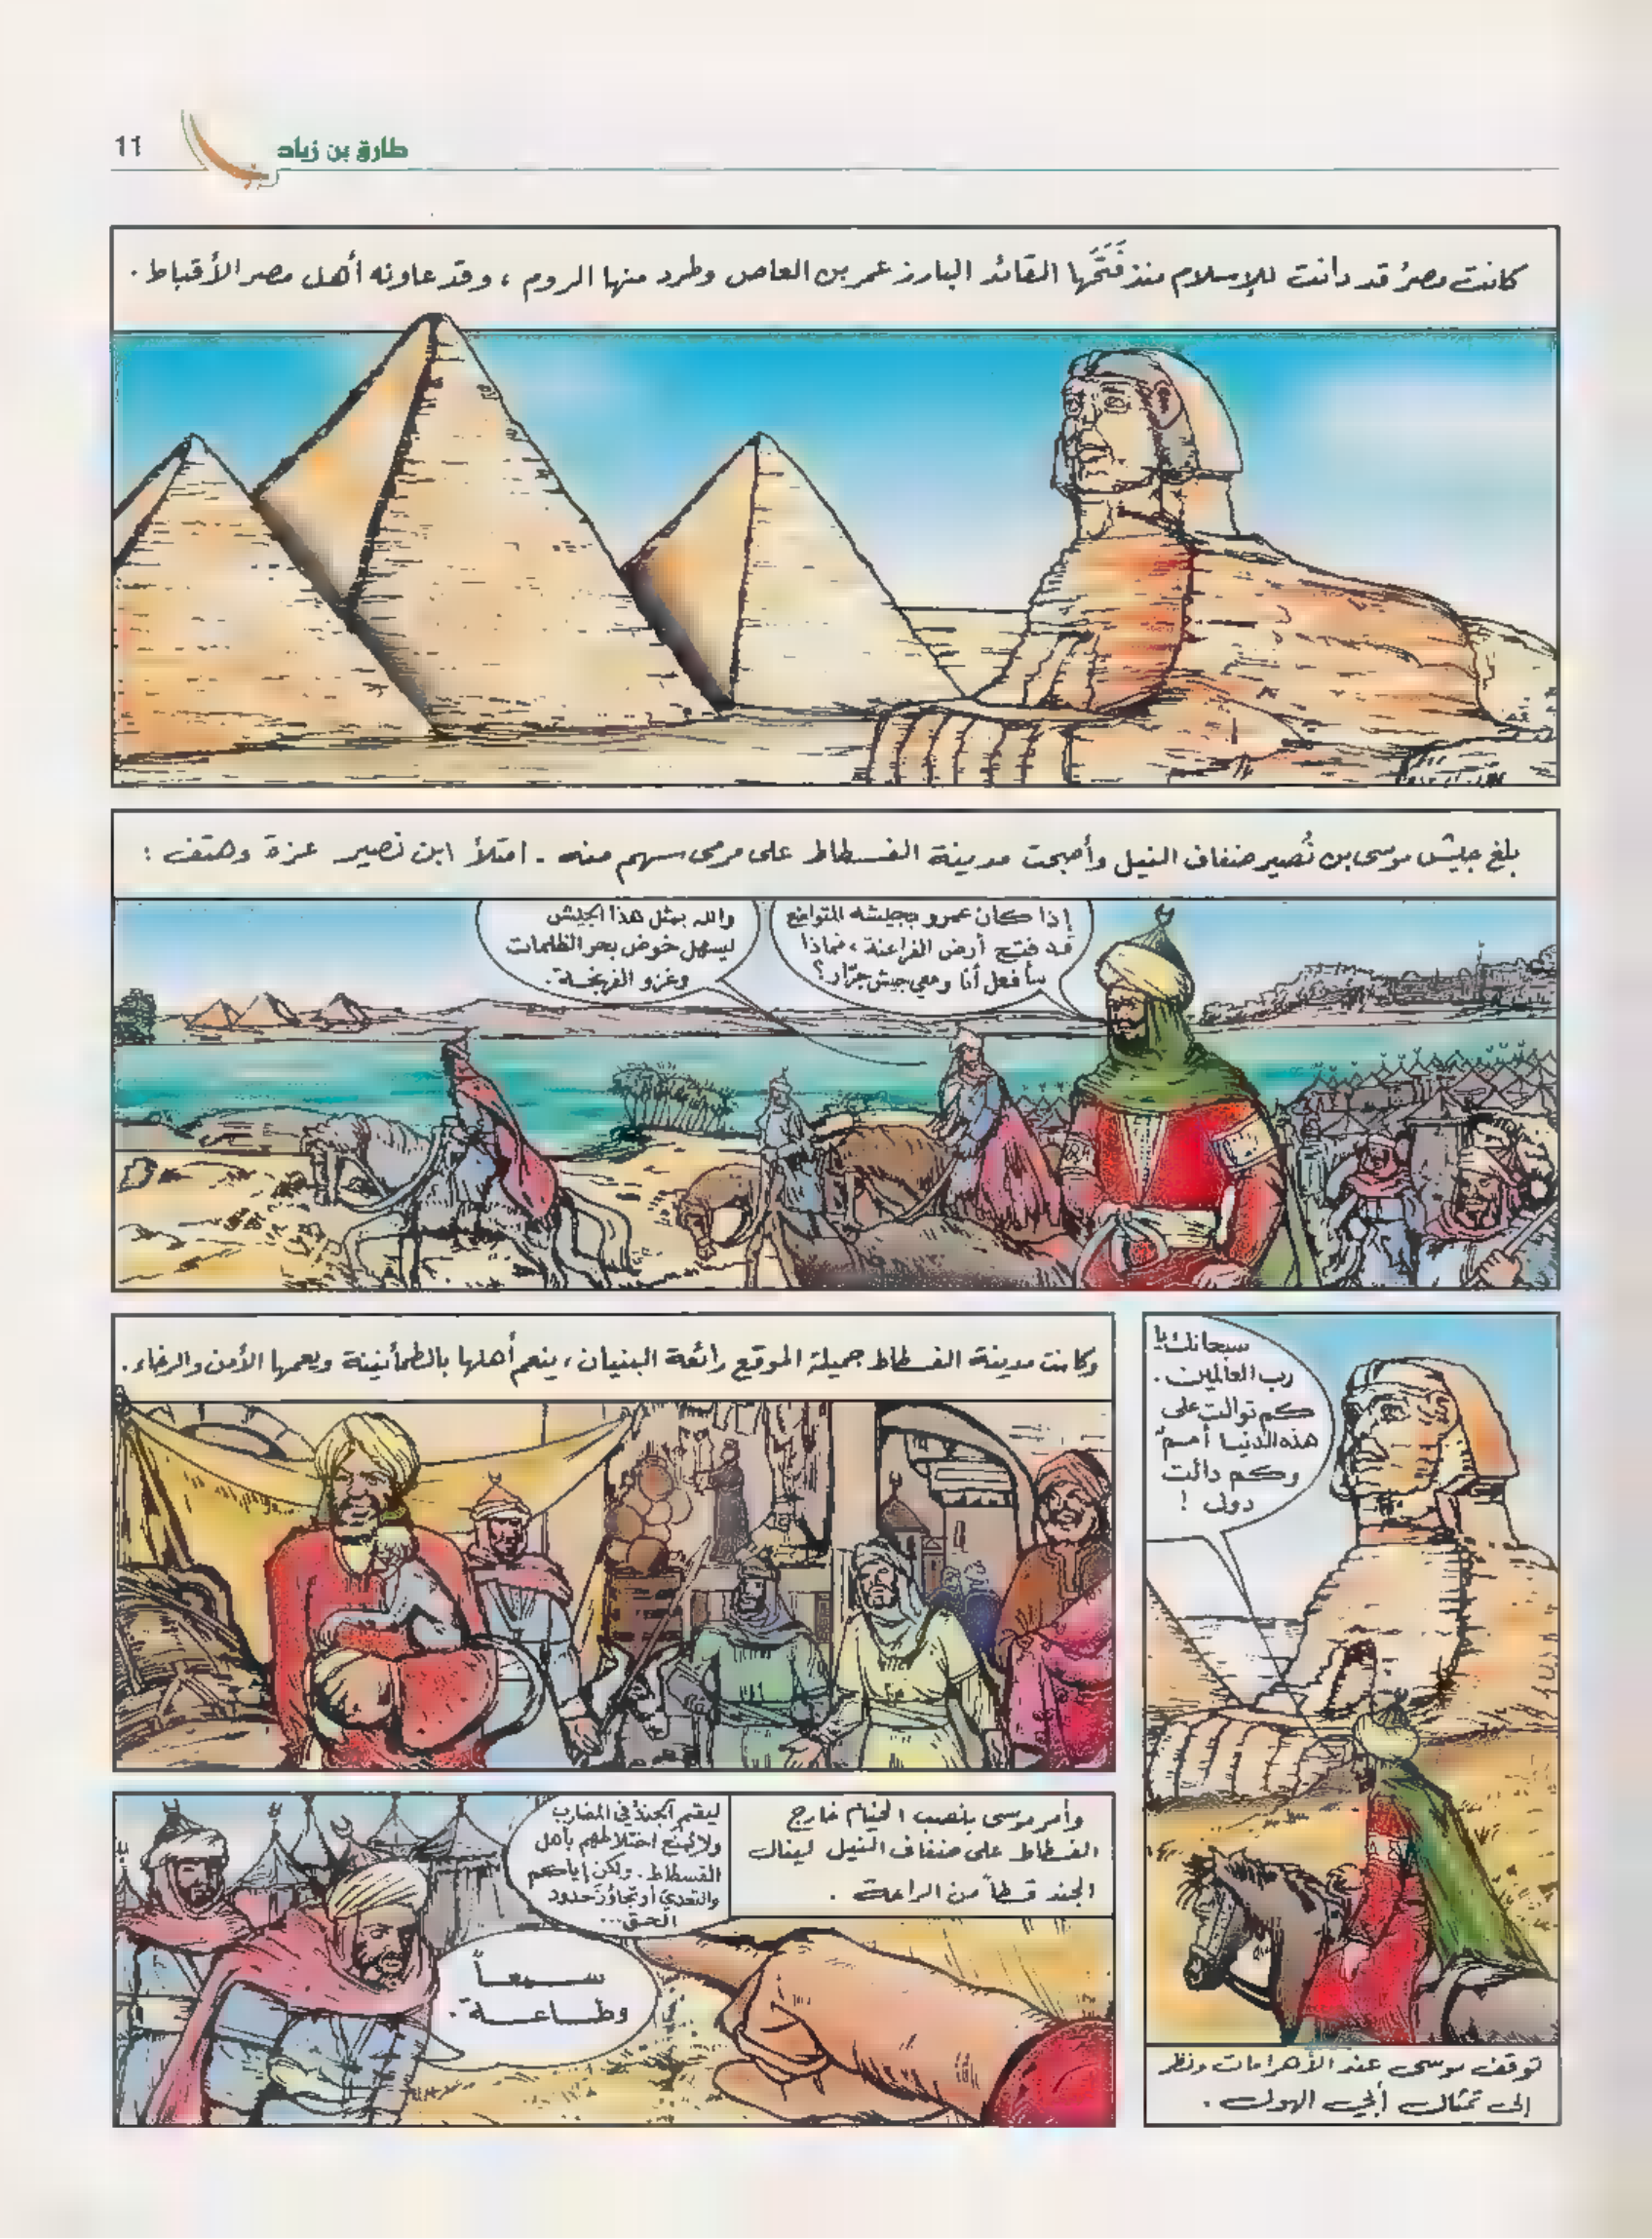 11
طارق بن زياد
كانت مصرُ قد دانت للإسلام منذ فَتَحَها القائد البارز عمر بن العاص وطرد منها الروم ، وقد عاونه أهل مصر الأقباط .
بلغ جيش موسى بن نُصير ضفاف النيل وأصبحت مدينة الفسطاط على مرمى سهم منه . امتلأ ابن نصير عزة وهتف :
إذا كان عمرو بجيشه المتواضع
قد فتح أرض الفراعنة ، فماذا
سأفعل أنا ومعي جيش جرّار؟
والله بمثل هذا الجيش
ليسهل خوض بحر الظلمات
وغزو الفرنجة .
سبحانك يا
رب العالمين .
كم توالت على
هذه الدنيا أممٌ
وكم دالت
دول !
توقف موسى عند الأهرامات ونظر
إلى تمثال أبي الهول .
وكانت مدينة الفسطاط جميلة الموقع رائعة البنيان ، ينعم أهلها بالطمأنينة ويعمها الأمن والرخاء .
وأمر موسى بنصب الخيام خارج
الفسطاط على ضفاف النيل لينال
الجند قسطاً من الراحة .
ليقم الجندُ في المضارب
ولا يُمنع اختلاطهم بأهل
الفسطاط . ولكن إياكم
والتعدي أو تجاوُز حدود
الحق ...
سمعاً
وطاعة .